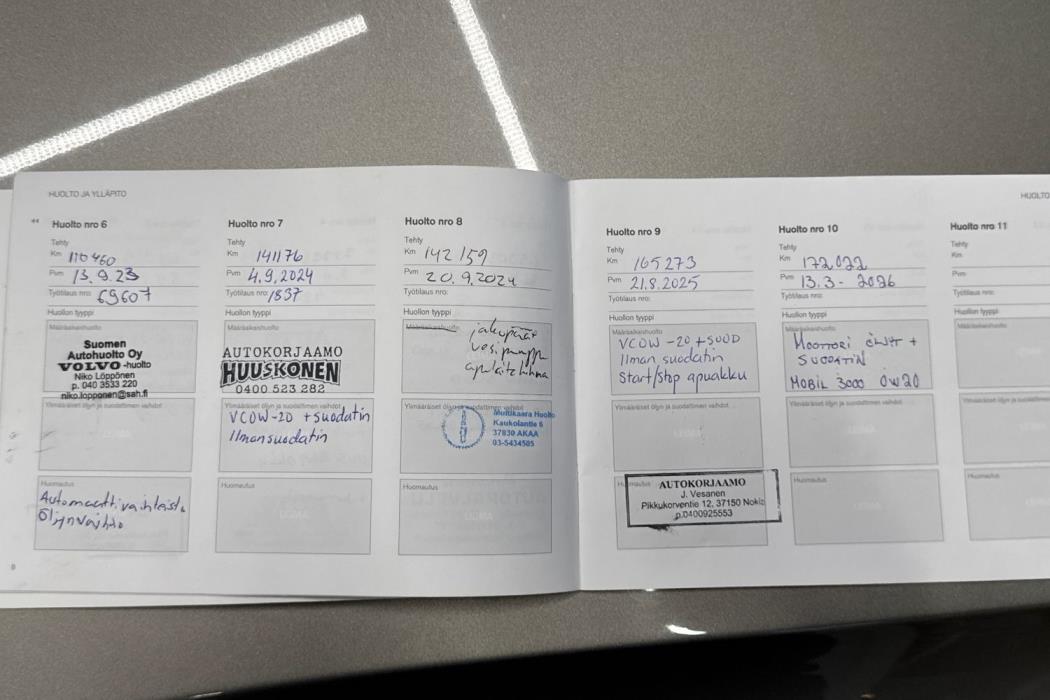 HUOLTO JA YLLÄPITO
Huolto nro 6
Tehty
Km 110460
Pvm 13.9.23
Työtilaus nro: 69607
Huollon tyyppi
Määräaikaishuolto
Suomen
Autohuolto Oy
VOLVO -huolto
Niko Löppönen
p. 040 3533 220
niko.lopponen@sah.fi
Huomautus
Automaattivaihteist.
Öljynvaihto
8
Huolto nro 7
Tehty
Km 141176
Pvm 4.9.2024
Työtilaus nro: 1837
Huollon tyyppi
Määräaikaishuolto
AUTOKORJAAMO
HUUSKONEN
0400 523 282
Ylimääräiset öljyn ja suodattimen vaihdot
VCOW-20 + suodatin
Ilmansuodatin
Huomautus
Huolto nro 8
Tehty
Km 142 159
Pvm 20.9.2024
Työtilaus nro:
Huollon tyyppi
Määräaikaishuolto
jakopään
vesipumppu
apulaitehihna
Ylimääräiset öljyn ja suodattimen vaihdot
Multikaara Huolto
Kaukolantie 6
37830 AKAA
03-5434505
Huomautus
Huolto nro 9
Tehty
Km 165273
Pvm 21.8.2025
Työtilaus nro:
Huollon tyyppi
Määräaikaishuolto
VCOW -20 + SUOD
Ilman suodatin
Start/stop apuakku
Ylimääräiset öljyn ja suodattimen vaihdot
Huomautus
AUTOKORJAAMO
J. Vesanen
Pikkukorventie 12, 37150 Nokia
p.0400925553
Huolto nro 10
Tehty
Km 172022
Pvm 13.3 - 2026
Työtilaus nro:
Huollon tyyppi
Määräaikaishuolto
MOOTTORI ÖLJYT +
SUODATIN
MOBIL 3000 0W20
Ylimääräiset öljyn ja suodattimen vaihdot
Huomautus
HUOLTO
Huolto nro 11
Tehty
Km
Pvm
Työtilaus nro:
Huollon tyyppi
Määräaikaishuolto
Ylimääräiset öljyn ja
Huomautus